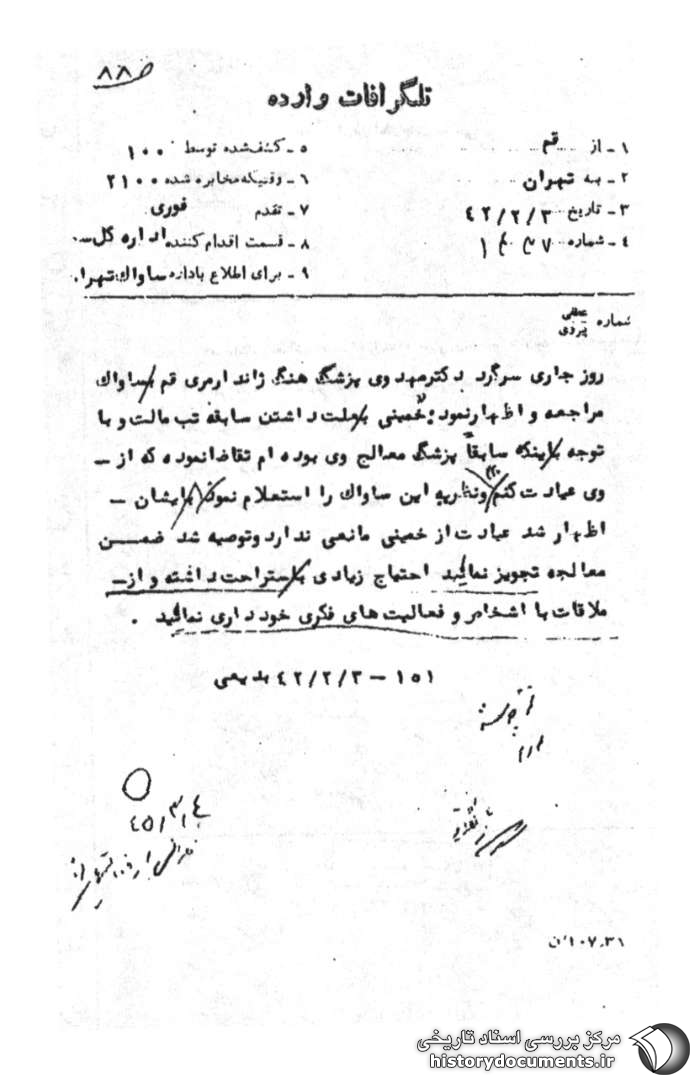 ص ۸۸
تلگرافات وارده
۱ - از قم
۲ - به تهران
۳ - تاریخ ۴۲/۲/۳
۴ - شماره
۵ - کشف شده توسط ۱۰۰
۶ - وقتیکه مخابره شده ۲۱۰۰
۷ - تقدم فوری
۸ - قسمت اقدام کننده اداره کل س..
۹ - برای اطلاع باداره ساواک تهرا.
شماره عطفی پیروی
روز جاری سرگرد دکتر مهدوی پزشگ هنگ ژاندارمری قم بساواک
مراجعه و اظهار نمود: خمینی بعلت داشتن سابقه تب مالت و با
توجه باینکه سابقاً پزشگ معالج وی بوده ام تقاضا نموده که از -
وی عیادت کنم ونظریه این ساواک را استعلام نمود بایشان -
اظهار شد عیادت از خمینی مانعی ندارد وتوصیه شد ضمن
معالجه تجویز نمائید احتیاج زیادی باستراحت داشته و از -
ملاقات با اشخاص و فعالیت های فکری خود داری نمائید .
۱۵۱ - ۴۲/۲/۳ بدیعی
۱۰۷،۳۱/ن
مرکز بررسی اسناد تاریخی
historydocuments.ir